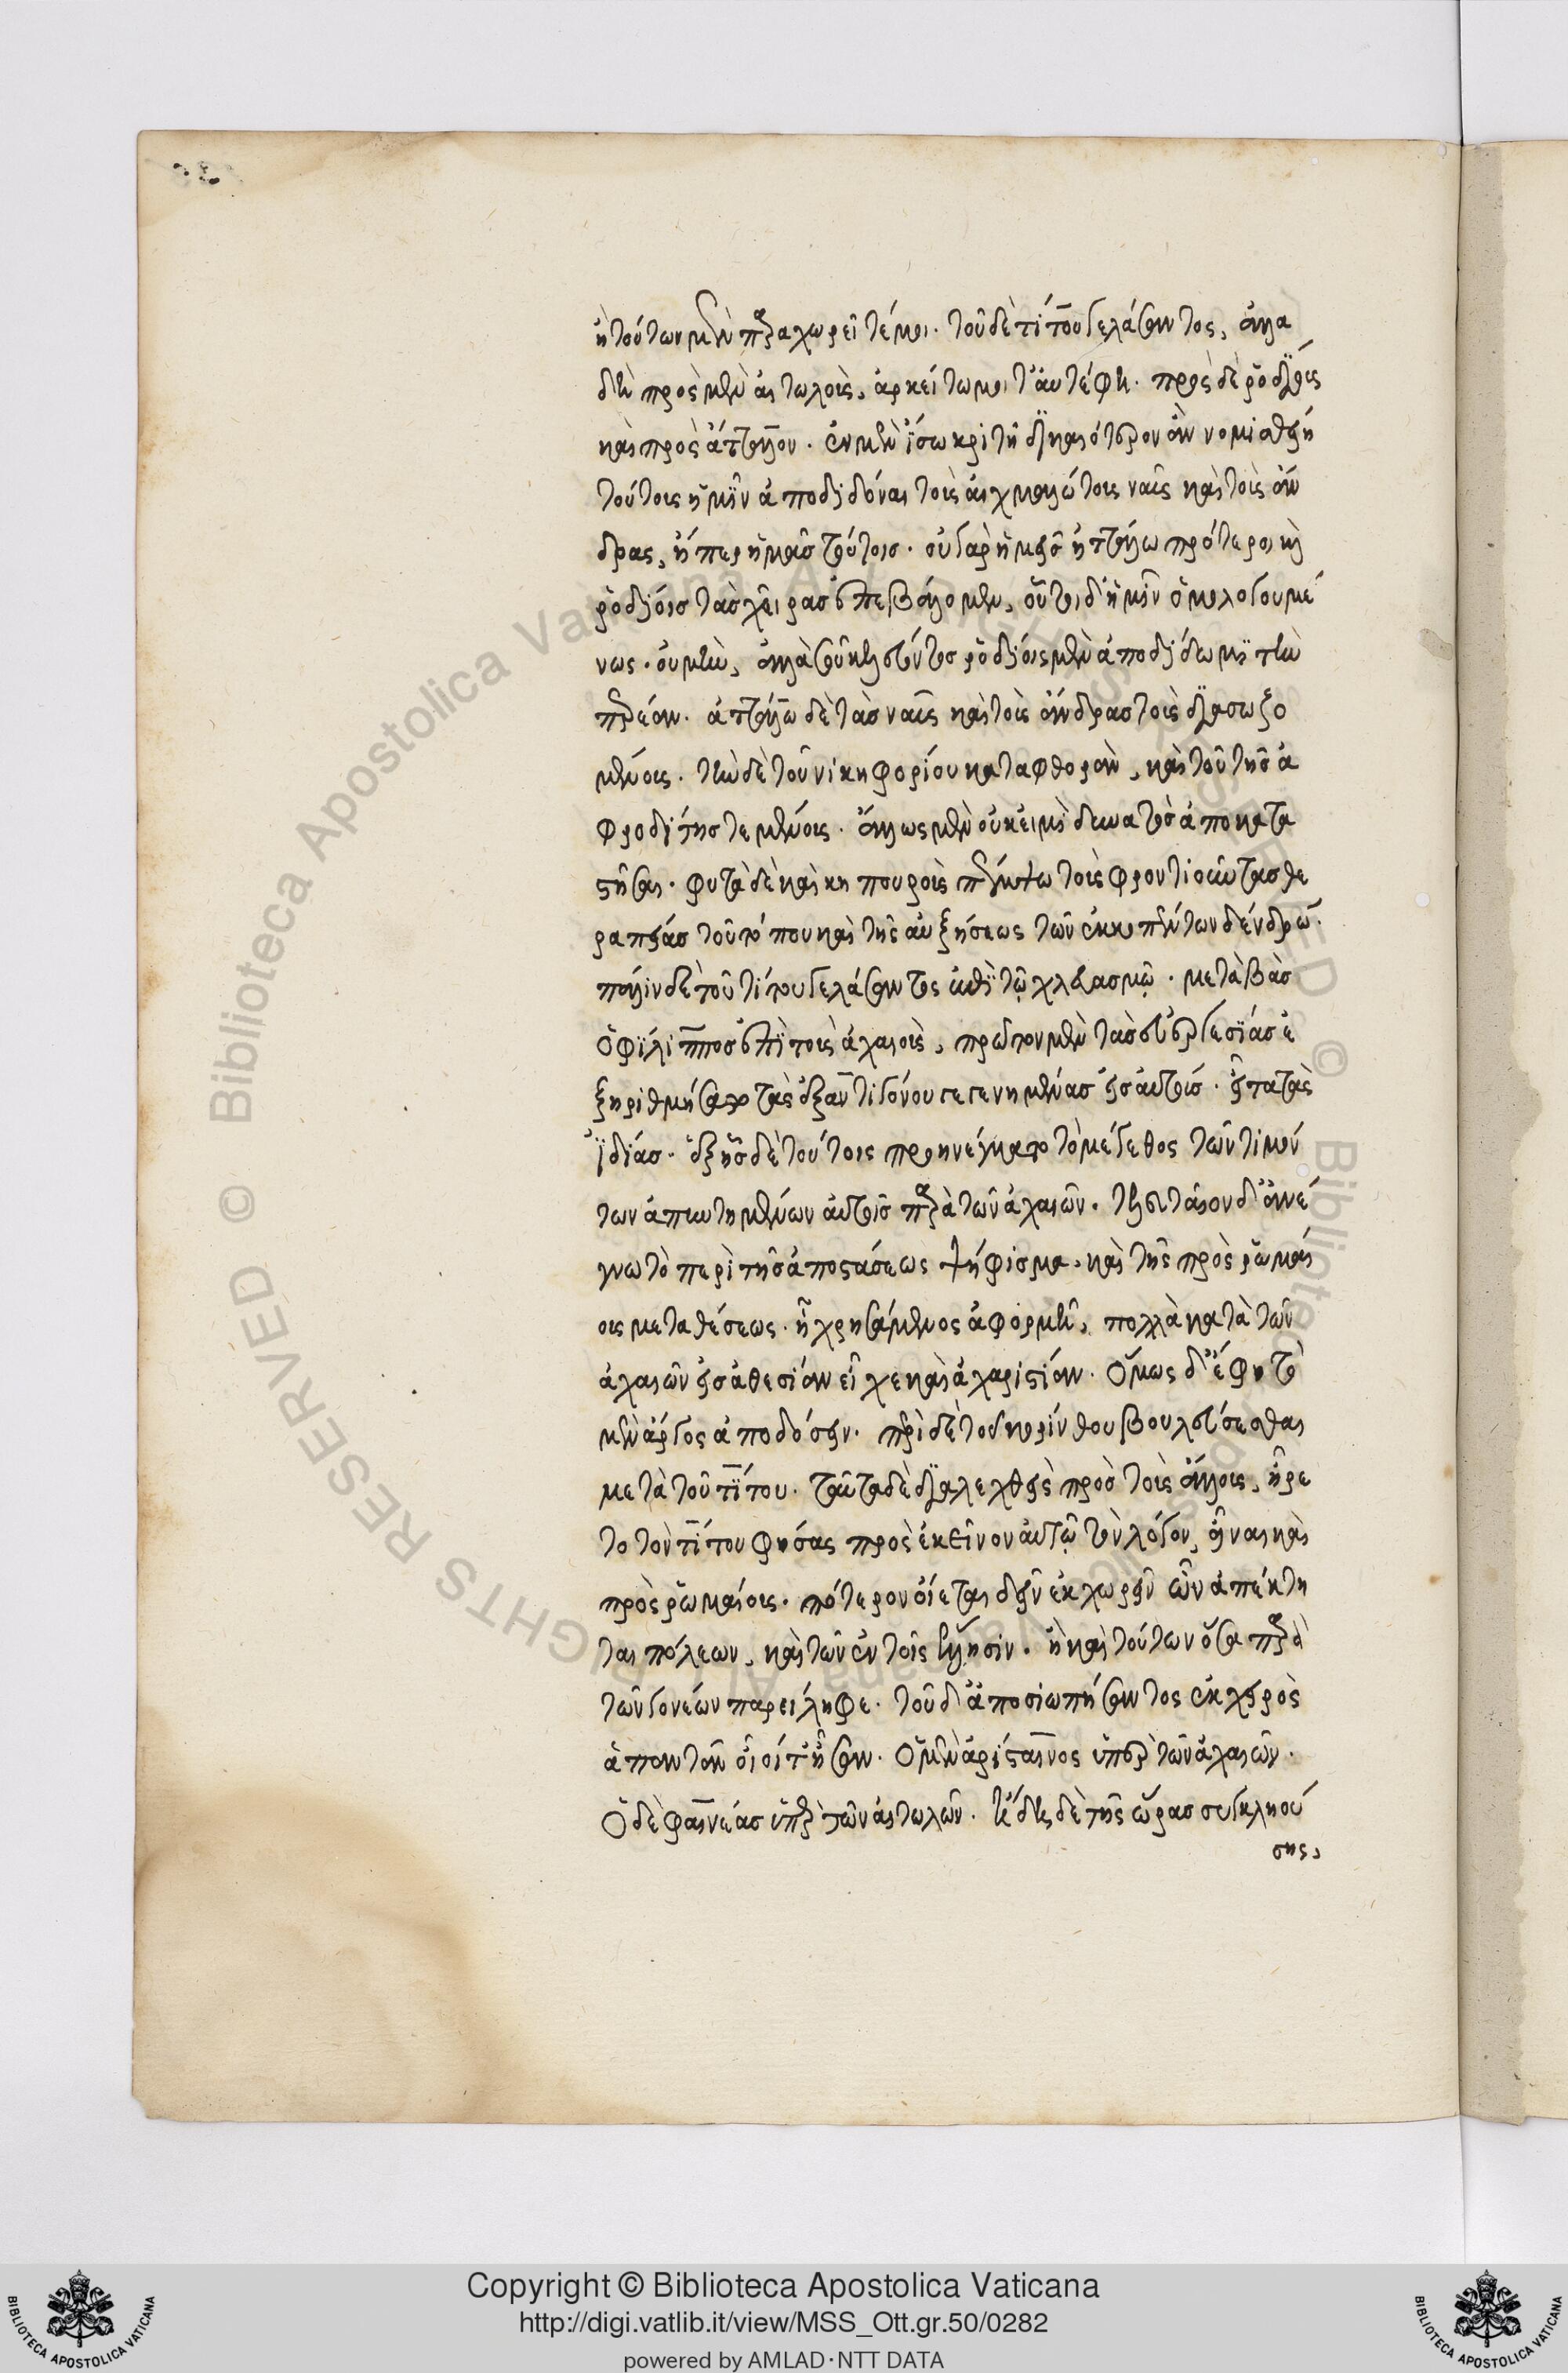 ἢ τούτων μὲν παραχωρεῖτέ μοι. τοῦ δὲ τίτου γελάσαντος, ἀλλὰ
δὴ πρὸς μὲν αἰτωλοὺς, ἀρκείτω μοι ταῦτ ἔφη. πρὸς δὲ ῥοδίους
καὶ πρὸς ἄτταλον. ἐν μὲν ἴσω κριτῆ δικαιότερον ἂν νομισθείη
τούτους ἡμῖν ἀποδιδόναι τοὺς αἰχμαλώτους ναῦς καὶ τοὺς ἄν
δρας, ἤπερ ἡμᾶς τούτοις. οὐ γὰρ ἡμεῖς ἀττάλω πρότεροι καὶ
ῥοδίοις τὰς χεῖρας ἐπεβάλομεν, οὗτοι δ' ἡμῖν ὁμολογουμέ
νως. οὐ μὴν, ἀλλὰ σοῦ κελεύοντος ῥοδίοις μὲν ἀποδίδωμι τὴν
περέαν. ἀττάλω δὲ τὰς ναῦς καὶ τοὺς ἄνδρας τοὺς διασωζο
μένους. τὴν δὲ τοῦ νικηφορίου καταφθορὰν, καὶ τοῦ τῆς ἀ
φροδίτης τεμένους. ἄλλως μὲν οὐκ εἰμὶ δυνατὸς ἀποκατα
στῆσαι. φυτὰ δὲ καὶ κηπουροὺς πέμψω τοὺς φροντιοῦντας θε
ραπείας τοῦ τόπου καὶ τῆς αὐξήσεως τῶν ἐκκοπέντων δένδρων.
πάλιν δὲ τοῦ τίτου γελάσαντος ἐπὶ τῷ χλευασμῷ. μεταβὰς
ὁ φίλιππος ἐπὶ τοὺς ἀχαιοὺς, πρῶτον μὲν τὰς εὐεργεσίας ἐ
ξηριθμήσατο τὰς ἐξ ἀντιγόνου γεγενημένας εἰς αὐτοὺς. εἶτα τὰς
ἰδίας. ἑξῆς δὲ τούτοις προηνέγκατο τὸ μέγεθος τῶν τιμῶν
τῶν ἀπηντημένων αὐτοῖς παρὰ τῶν ἀχαιῶν. τελευταῖον δ' ἀνέ
γνω τὸ περὶ τῆς ἀποστάσεως ψήφισμα, καὶ τῆς πρὸς ῥωμαί
ους μεταθέσεως. ᾗ χρησάμενος ἀφορμῆ, πολλὰ κατὰ τῶν
ἀχαιῶν εἰς ἀθεσίαν εἶχε καὶ ἀχαριστίαν. ὅμως δ' ἔφη τὸ
μὲν ἄργος ἀποδόσειν. περὶ δὲ τοῦ κορίνθου βουλεύσεσθαι
μετὰ τοῦ τίτου. ταῦτα δὲ διαλεχθεὶς πρὸς τοὺς ἄλλους, ἤρε
το τὸν τίτον φήσας πρὸς ἐκεῖνον αὐτῷ τὸν λόγον εἶναι καὶ
πρὸς ῥωμαίους. πότερον οἴεται δεῖν ἐκχωρεῖν ὧν ἀπέκτη
ται πόλεων, καὶ τῶν ἐν τοῖς ἕλλησιν. ἢ καὶ τούτων ὅσα παρὰ
τῶν γονέων παρείληφε. τοῦ δ' ἀποσιωπήσαντος ἐκ χειρὸς
ἀπαντᾶν οἷοί τ' ἦσαν. ὁ μὲν ἀρίσταινος ὑπὲρ τῶν ἀχαιῶν.
ὁ δὲ φαινέας ὑπὲρ τῶν αἰτωλῶν. ἤδη δὲ τῆς ὥρας συγκλειού
σης,
Copyright © Biblioteca Apostolica Vaticana
http://digi.vatlib.it/view/MSS_Ott.gr.50/0282
powered by AMLAD·NTT DATA